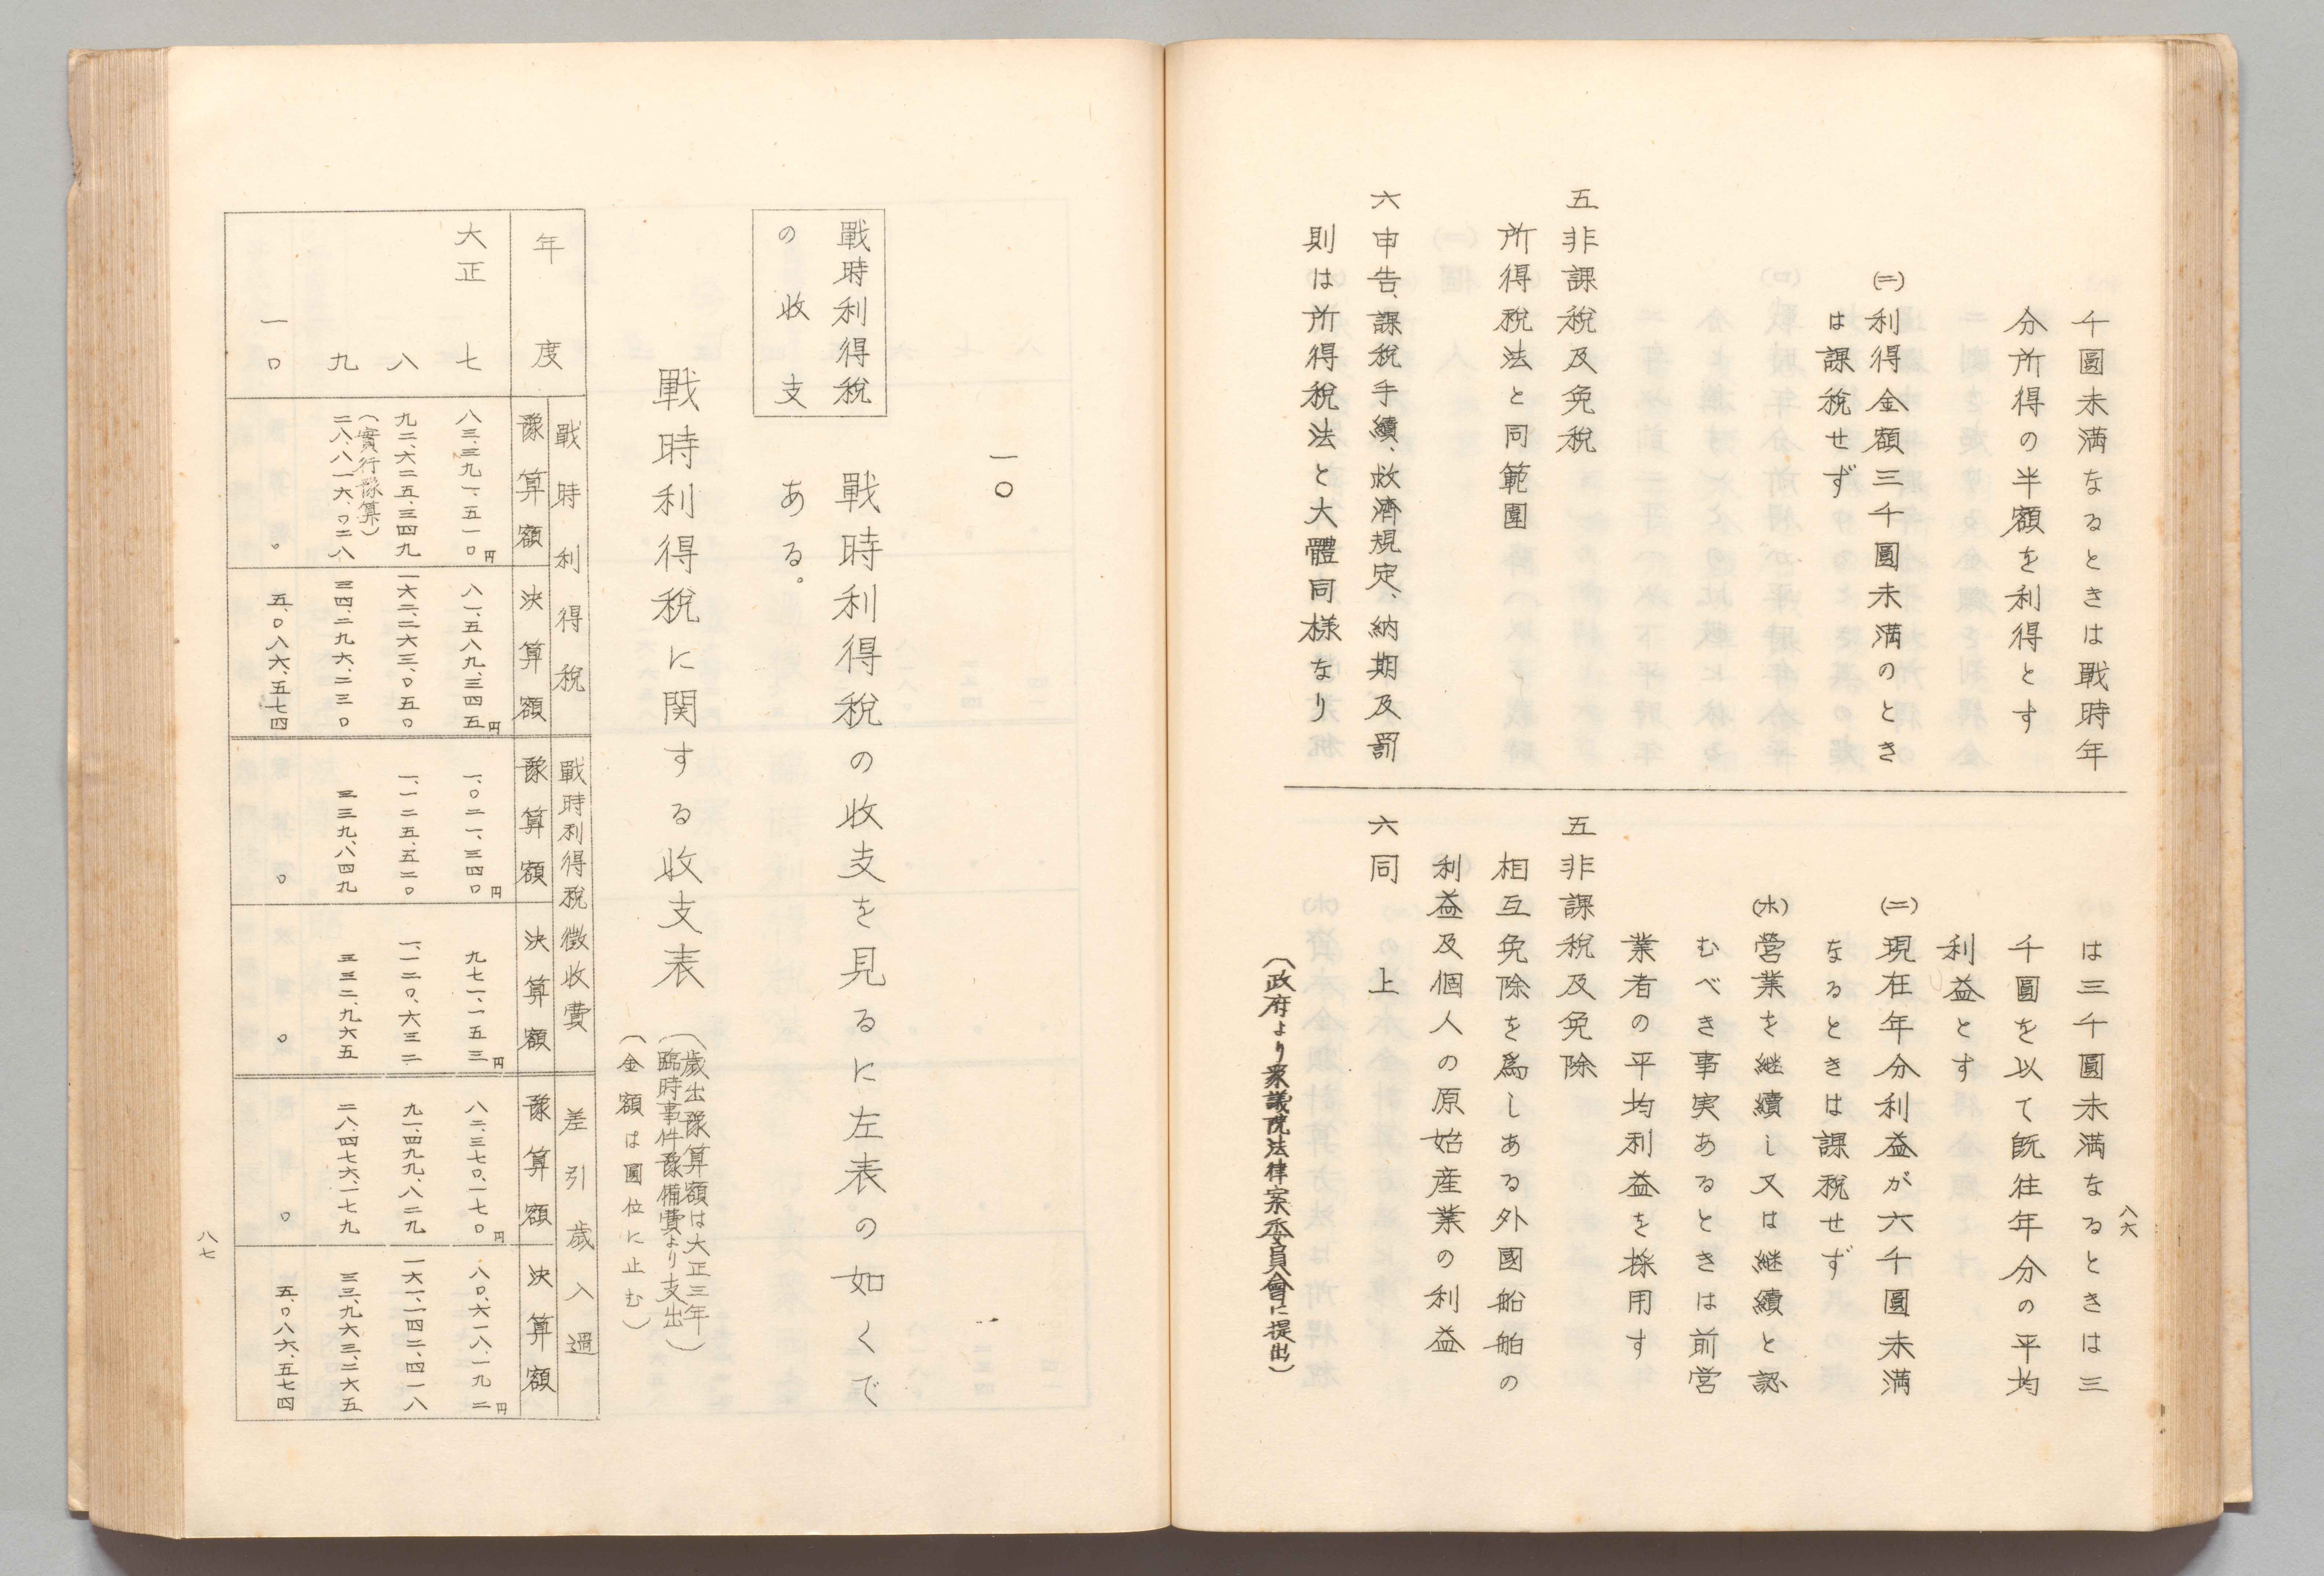 八六
千圓未満なるときは戰時年
分所得の半額を利得とす
(ニ)利得金額三千圓未満のとき
は課税せず
五 非課税及免税
所得税法と同範圍
六 申告、課税手續、救濟規定、納期及罰
則は所得税法と大體同様なり
は三千圓未満なるときは三
千圓を以て既往年分の平均
利益とす
(ニ)現在年分利益が六千圓未満
なるときは課税せず
(ホ)営業を継續し又は継續と認
むべき事実あるときは前営
業者の平均利益を採用す
五 非課税及免除
相互免除を爲しある外國船舶の
利益及個人の原始産業の利益
六 同上
(政府より衆議院法律案委員會に提出)
一〇
戰時利得税
の收支
戰時利得税の收支を見るに左表の如くで
ある。
戰時利得税に関する收支表
(歳出豫算額は大正三年
臨時事件豫備費より支出)
(金額は圓位に止む)
年度
戰時利得税
豫算額
決算額
戰時利得税徴收費
豫算額
決算額
差引歳入過
豫算額
決算額
大正七
八三、三九一、五一〇円
八一、五八九、三四五円
一、〇二一、三四〇円
九七一、一五三円
八二、三七〇、一七〇円
八〇、六一八、一九二円
八
九二、六二五、三四九
一六二、二六三、〇五〇
一、一二五、五二〇
一、一二〇、六三二
九一、四九九、八二九
一六一、一四二、四一八
九
(實行豫算)
二八、八一六、〇二八
三四、二九六、二三〇
三三九、八四九
三三二、九六五
二八、四七六、一七九
三三、九六三、二六五
一〇
〇
五、〇八六、五七四
〇
〇
〇
五、〇八六、五七四
八七